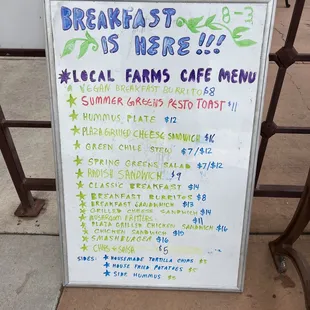 BREAKFAST 8-3
IS HERE!!!
*LOCAL FARMS CAFE MENU
VEGAN BREAKFAST BURRITO $8
SUMMER GREENS PESTO TOAST $11
HUMMUS PLATE $12
PLAZA GRILLED CHEESE SANDWICH $16
GREEN CHILE STEW $7/$12
SPRING GREENS SALAD $7/$12
RADISH SANDWICH $9
CLASSIC BREAKFAST $14
BREAKFAST BURRITOS $8
BREAKFAST SANDWHICH $13
GRILLED CHEESE SANDWICH $14
MUSHROOM FRITTERS $11
PLAZA GRILLED CHICKEN SANDWICH $16
CHICKEN SANDWICH $15
SMASHBURGER $16
CHIPS & SALSA $5
SIDES: *HOUSEMADE TORTILLA CHIPS $5
*HOUSE FRIED POTATOES $5
*SIDE HUMMUS $5